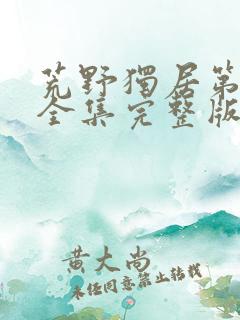 荒野獨居第
全集完整版
黄大尚
未经同意禁止转载